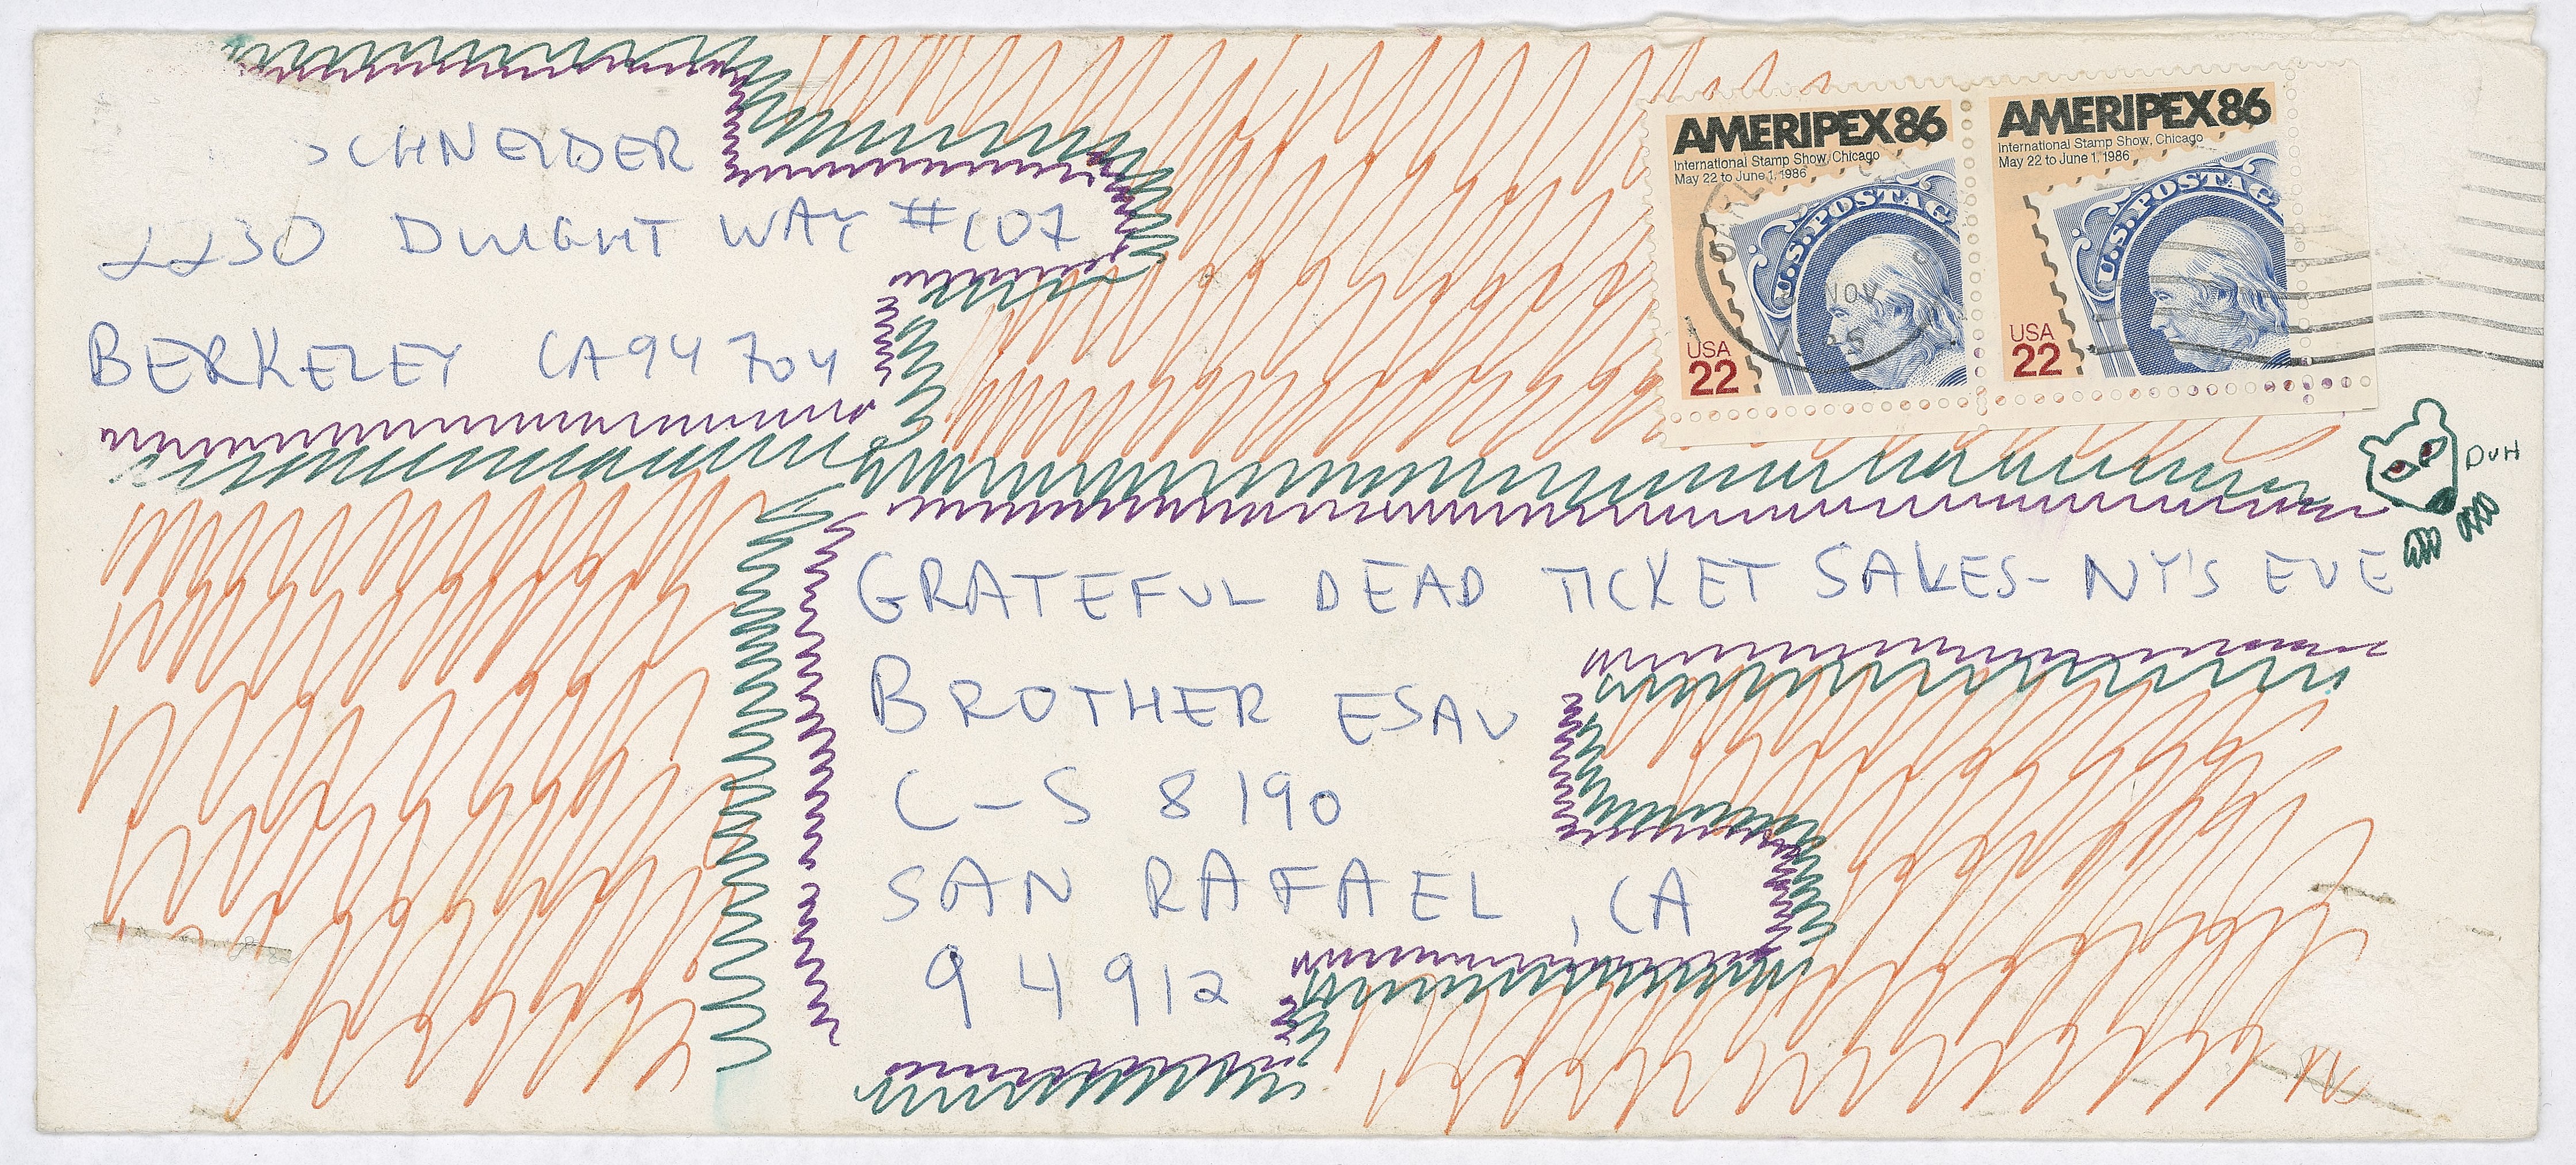 SCHNEIDER
2230 DWIGHT WAY #107
BERKELEY CA 94704
AMERIPEX 86
International Stamp Show, Chicago
May 22 to June 1, 1986
U.S. POSTAG
USA
22
NOV
AMERIPEX 86
International Stamp Show, Chicago
May 22 to June 1, 1986
U.S. POSTAG
USA
22
DUH
GRATEFUL DEAD TICKET SALES- NY'S EVE
BROTHER ESAU
C-S 8190
SAN RAFAEL, CA
94912